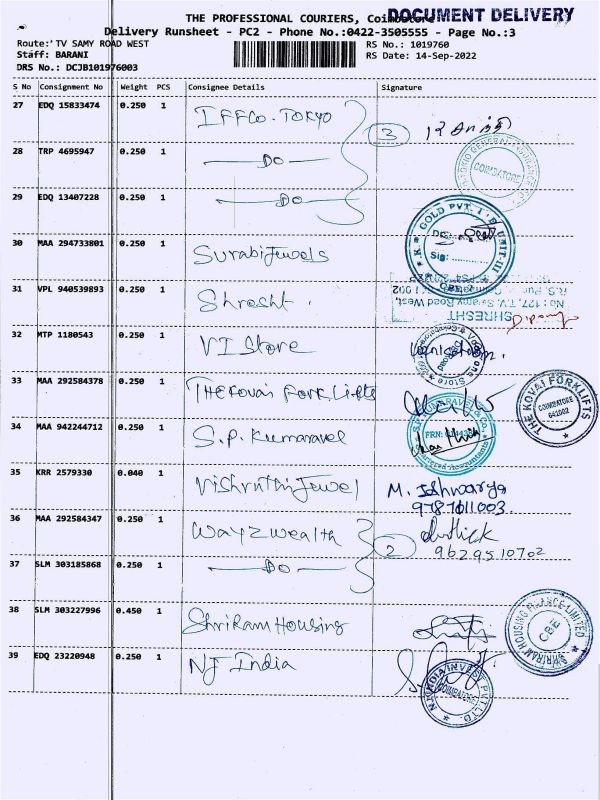 THE PROFESSIONAL COURIERS, Coimbatore
DOCUMENT DELIVERY
Delivery Runsheet - PC2 - Phone No.:0422-3505555 - Page No.:3
Route: TV SAMY ROAD WEST
RS No.: 1019760
Staff: BARANI
RS Date: 14-Sep-2022
DRS No.: DCJB101976003
S No Consignment No Weight PCS Consignee Details Signature
27 EDQ 15833474 0.250 1 IFFCo. TOKYO
3
28 TRP 4695947 0.250 1 Do
COIMBATORE
29 EDQ 13407228 0.250 1 Do
GOLD PVT. LTD UNIT-III
Sig:
30 MAA 294733801 0.250 1 Surabi Jewels
31 VPL 940539893 0.250 1 Shresht.
SHRESHT
No:127, T.V. Swamy Road West,
32 MTP 1180543 0.250 1 VI Store
33 MAA 292584378 0.250 1 THE Kovai Fork Lifts
THE KOVAI FORKLIFTS
COIMBATORE
641002
34 MAA 942244712 0.250 1 S.P. Kumaravel
FRN:
Chartered Accountants
35 KRR 2579330 0.040 1 Vishruthi Jewel M. Ishwarya
9787611003
36 MAA 292584347 0.250 1 Way2Wealth
2
9629510702
37 SLM 303185868 0.250 1 Do
38 SLM 303227996 0.450 1 Shriram Housing
SHRIRAM HOUSING FINANCE LIMITED
CBE
39 EDQ 23220948 0.250 1 NJ India
NJ INDIA INVEST PVT LTD.
COIMBATORE